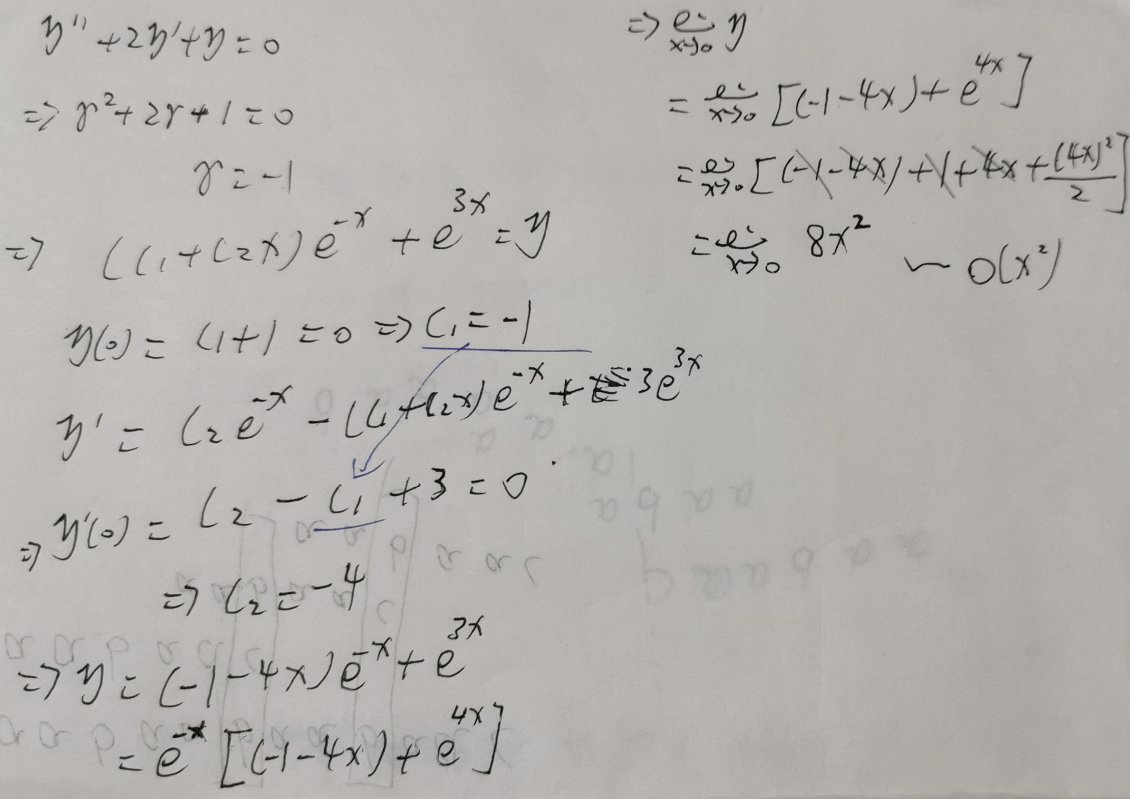 y'' + 2y' + y = 0
=> r² + 2r + 1 = 0
r = -1
=> (C₁ + C₂x)e^{-x} + e^{3x} = y
y(0) = C₁ + 1 = 0 => C₁ = -1
y' = C₂e^{-x} - (C₁ + C₂x)e^{-x} + 3e^{3x}
=> y'(0) = C₂ - C₁ + 3 = 0
=> C₂ = -4
=> y = (-1 - 4x)e^{-x} + e^{3x}
= e^{-x} [(-1 - 4x) + e^{4x}]
=> lim_{x→0} y
= lim_{x→0} [(-1 - 4x) + e^{4x}]
= lim_{x→0} [(-1 - 4x) + 1 + 4x + (4x)²/2]
= lim_{x→0} 8x² ~ O(x²)